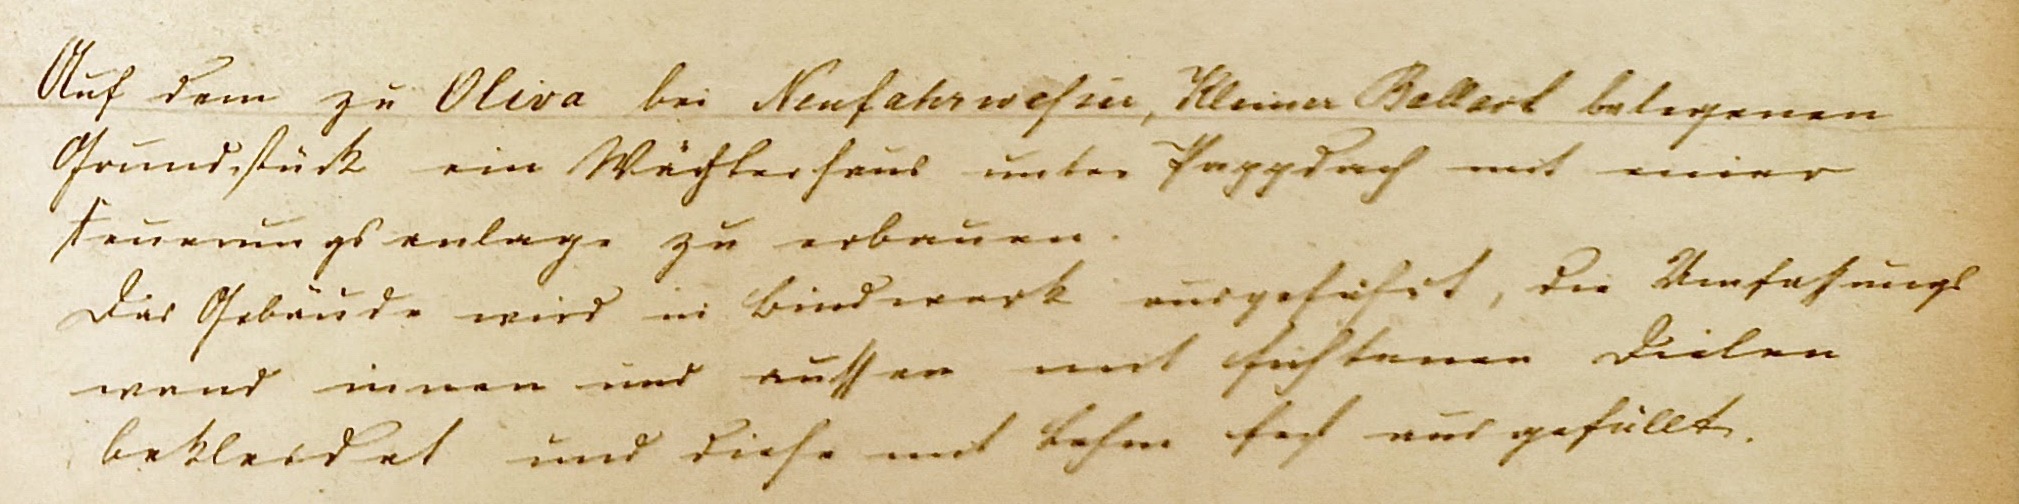 Auf dem zu Oliva bei Neufahrwasser, Kleiner Ballast belegenen
Grundstück ein Wächterhaus unter Pappdach mit einer
Feuerungsanlage zu erbauen.
Das Gebäude wird in Bindwerk ausgeführt, die Umfassungs
wand innen und aussen mit fichtenen Dielen
bekleidet und diese mit Lehm fest ausgefüllt.